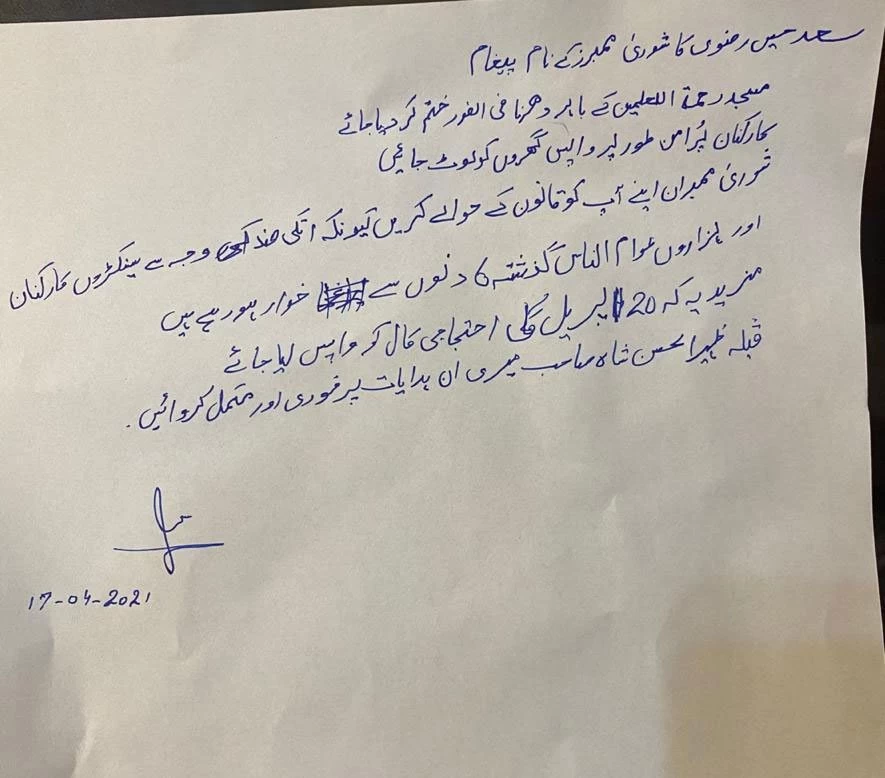 سعد حسین رضوی کا شوریٰ ممبرز کے نام پیغام
مسجد رحمۃ اللعلمین کے باہر دھرنا فی الفور ختم کر دیا جائے
کارکنان پُرامن طور پر واپس گھروں کو لوٹ جائیں
شوریٰ ممبران اپنے آپ کو قانون کے حوالے کریں کیونکہ انکی ضد کی وجہ سے سینکڑوں کارکنان
اور ہزاروں عوام الناس گذشتہ 6 دنوں سے خوار ہو رہے ہیں
مزید یہ کہ 20 اپریل کی احتجاجی کال کو واپس لیا جائے
قبلہ ظہیر الحسن شاہ صاحب میری ان ہدایات پر فوری اور مکمل کروائیں۔
17-04-2021